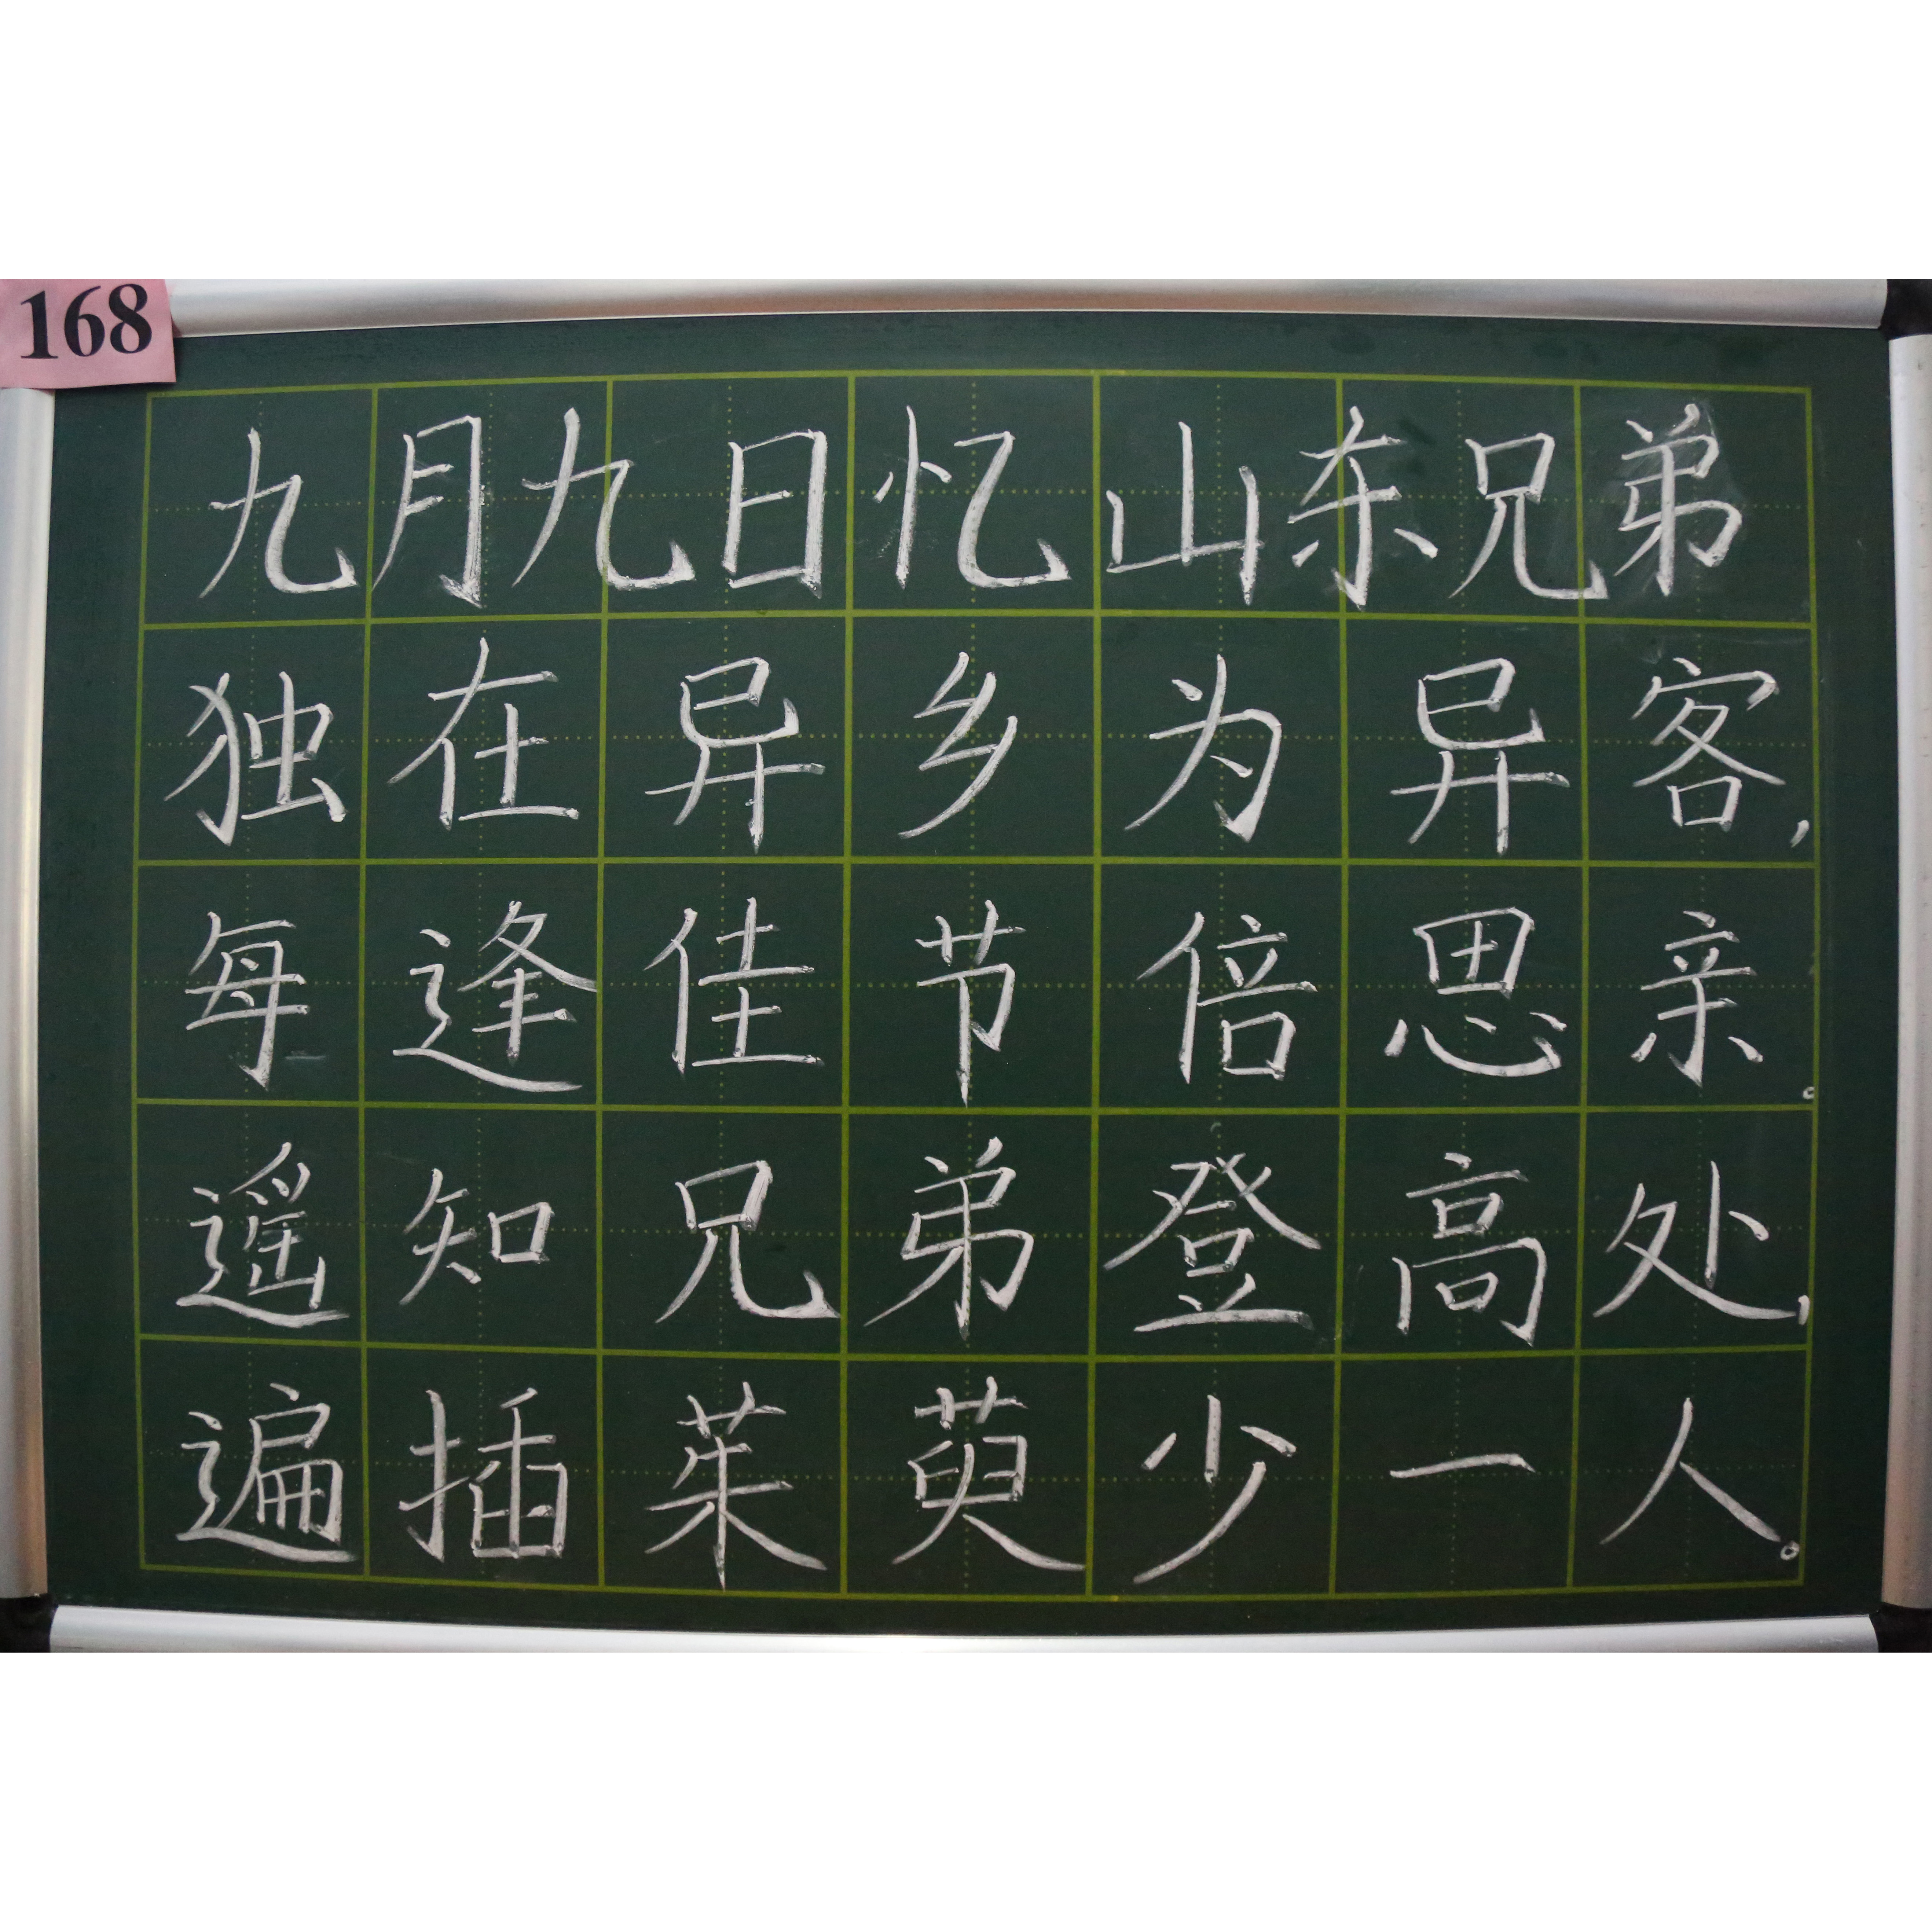 168
九月九日忆山东兄弟
独在异乡为异客,
每逢佳节倍思亲。
遥知兄弟登高处,
遍插茱萸少一人。